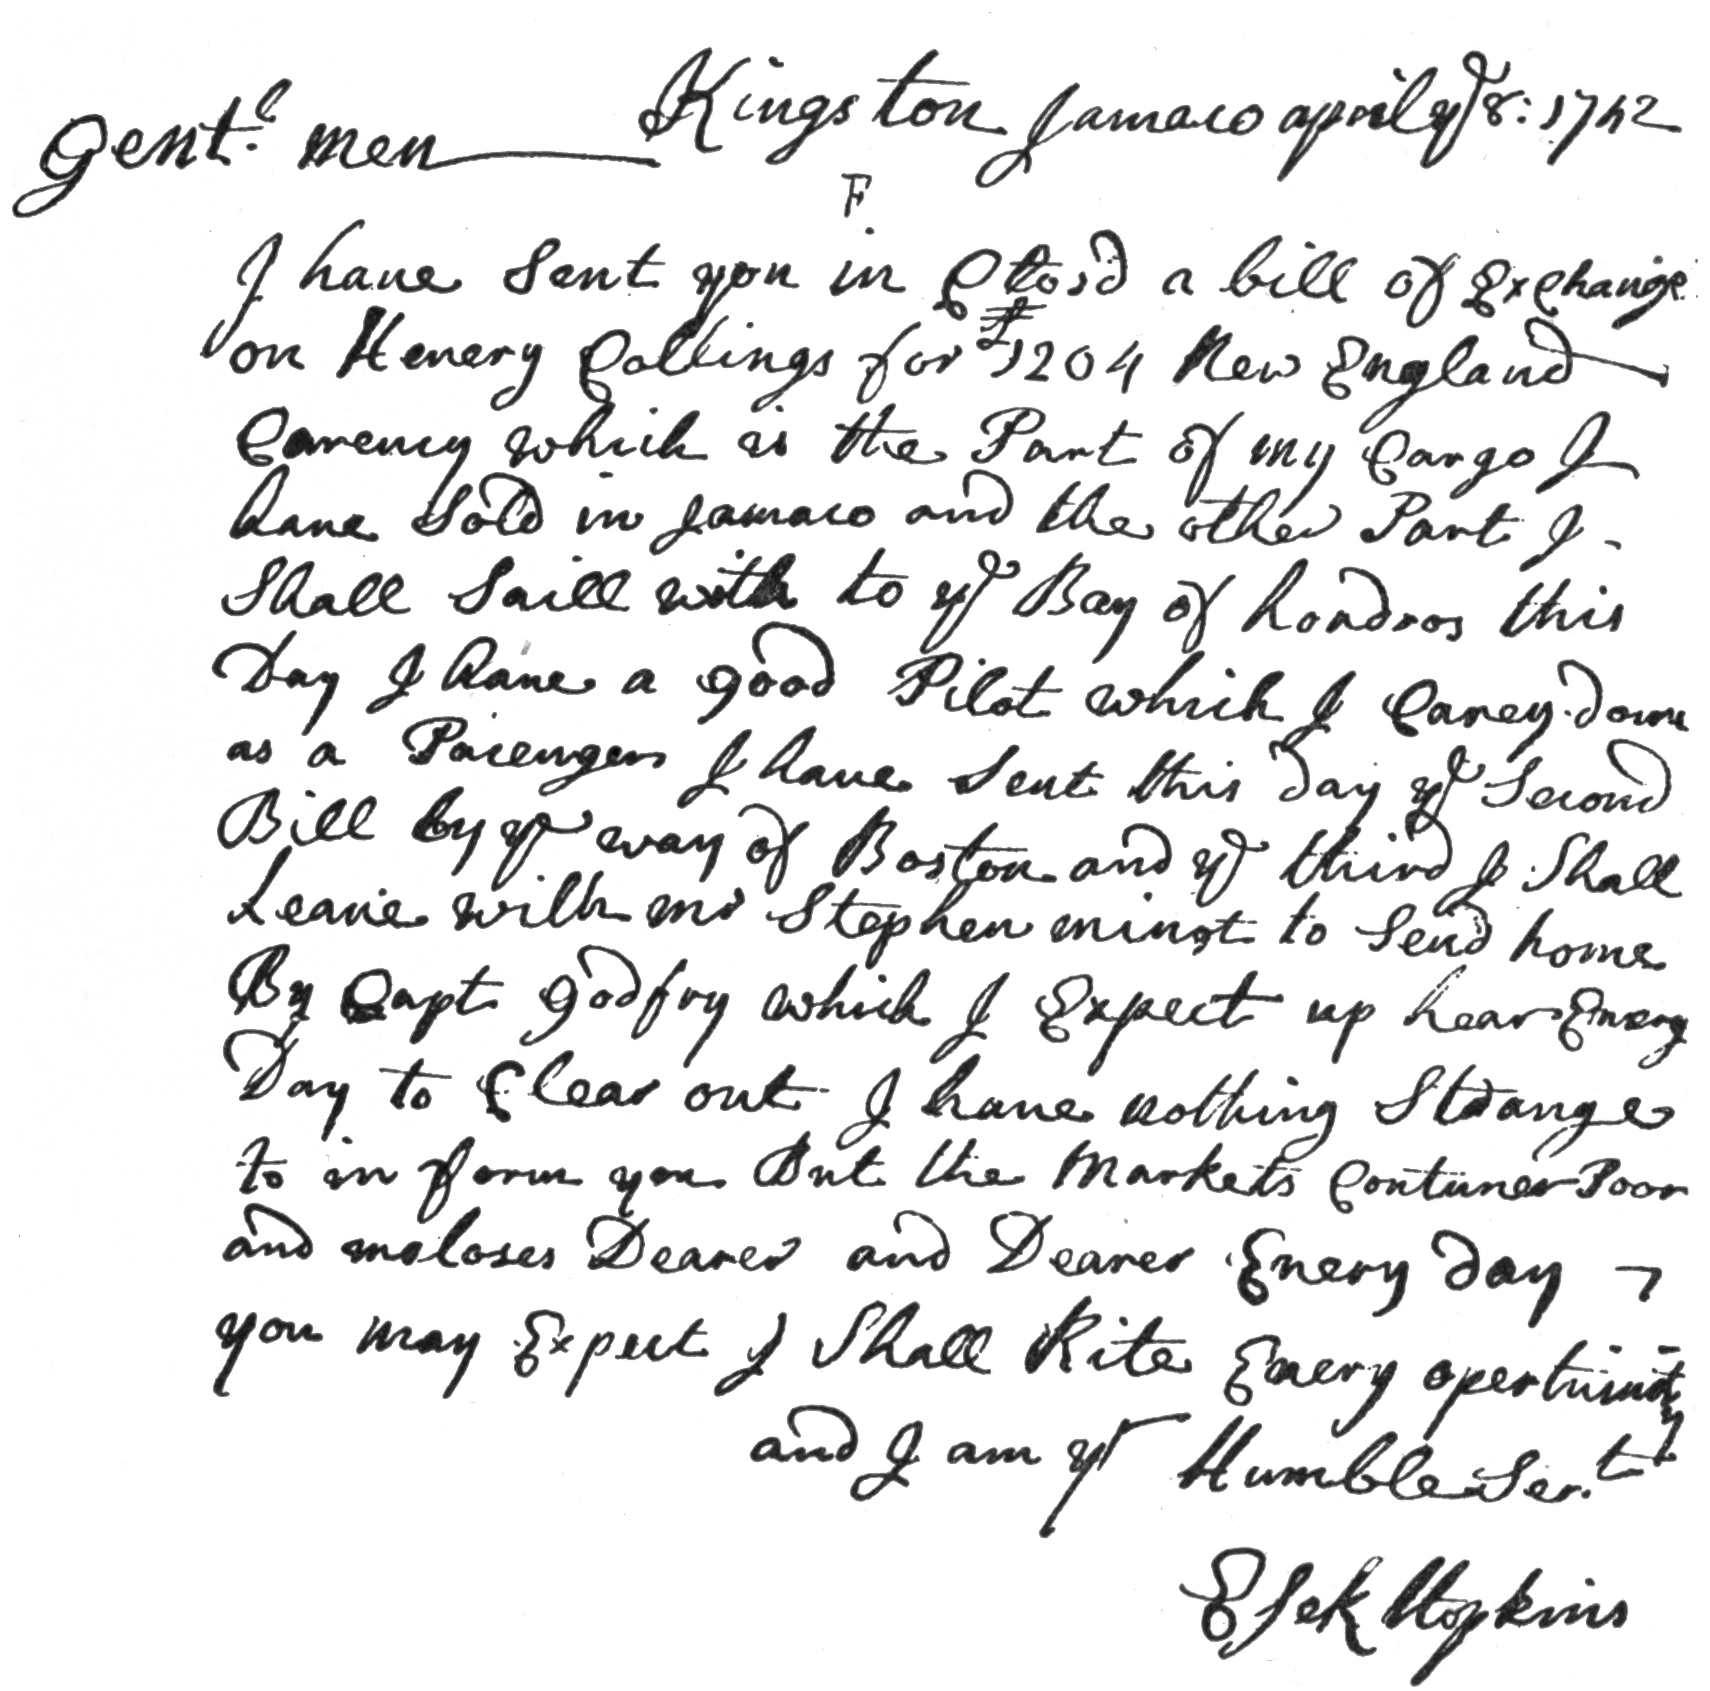 Kingston Jamaco april ye 8: 1742
Gentl. men
F
I have Sent you in Closd a bill of Exchange
on Henery Collings for £1204 New England
Carency which is the Part of my Cargo I
have Sold in Jamaco and the other Part I
Shall Saill with to ye Bay of hondros this
Day I have a good Pilot which I Carey down
as a Pasenger I have Sent this day ye Second
Bill by ye way of Boston and ye third I Shall
Leave with mr Stephen minot to Send home
By Capt godfry which I Expect up hear Every
Day to Clear out I have nothing Strange
to in form you But the Markets Contuner Poor
and moloses Dearer and Dearer Every day
you may Expect I Shall Rite Every opertuinity
and I am yr Humble Ser.t
Esek Hopkins